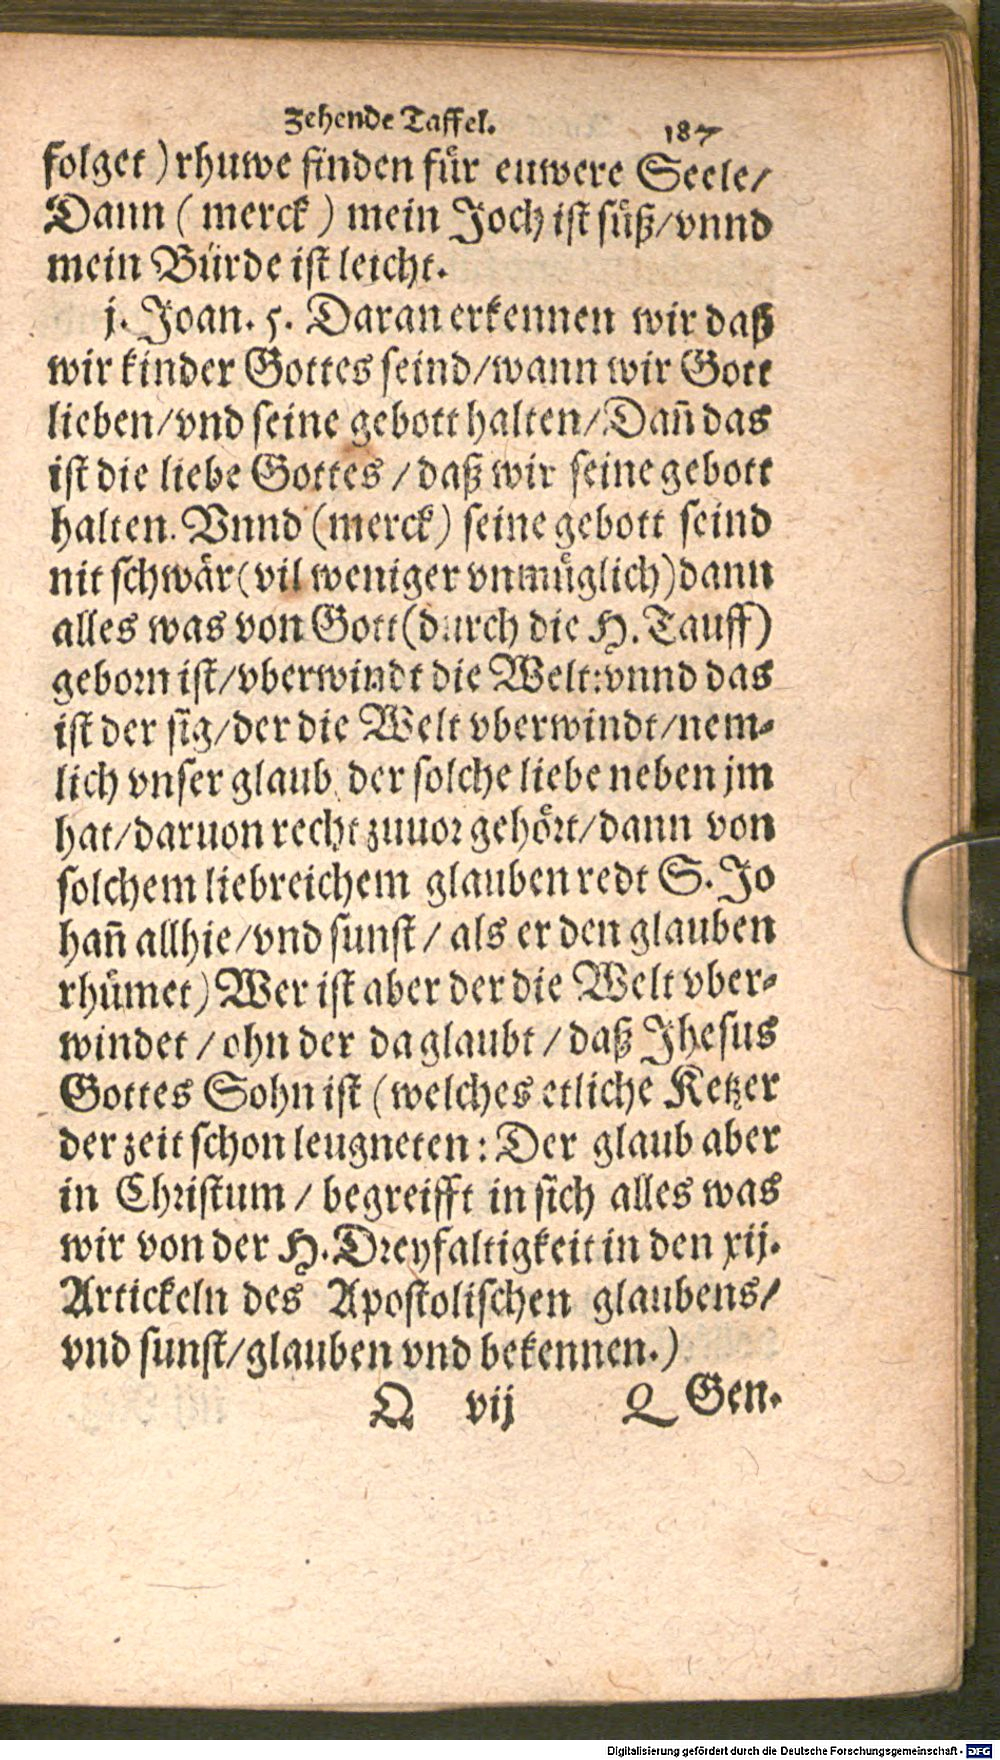 Zehende Taffel. 187
folget) rhuwe finden für euwere Seele/
Dann (merck) mein Joch ist süß/vnnd
mein Bürde ist leicht.
j. Joan. 5. Daran erkennen wir daß
wir kinder Gottes seind/wann wir Gott
lieben/vnd seine gebott halten/Dañ das
ist die liebe Gottes/daß wir seine gebott
halten. Vnnd (merck) seine gebott seind
nit schwär(vil weniger vnmüglich)dann
alles was von Gott(durch die H. Tauff)
geborn ist/vberwindt die Welt:vnnd das
ist der sig/der die Welt vberwindt/nem-
lich vnser glaub, der solche liebe neben jm
hat/daruon recht zuuor gehört/dann von
solchem liebreichem glauben redt S. Jo
hañ allhie/vnd sunst/als er den glauben
rhümet) Wer ist aber der die Welt vber-
windet/ohn der da glaubt/daß Jhesus
Gottes Sohn ist (welches etliche Ketzer
der zeit schon leugneten: Der glaub aber
in Christum/begreifft in sich alles was
wir von der H. Dreyfaltigkeit in den xij.
Artickeln des Apostolischen glaubens/
vnd sunst/glauben vnd bekennen.)
Q vij Q Gen.
Digitalisierung gefördert durch die Deutsche Forschungsgemeinschaft - DFG